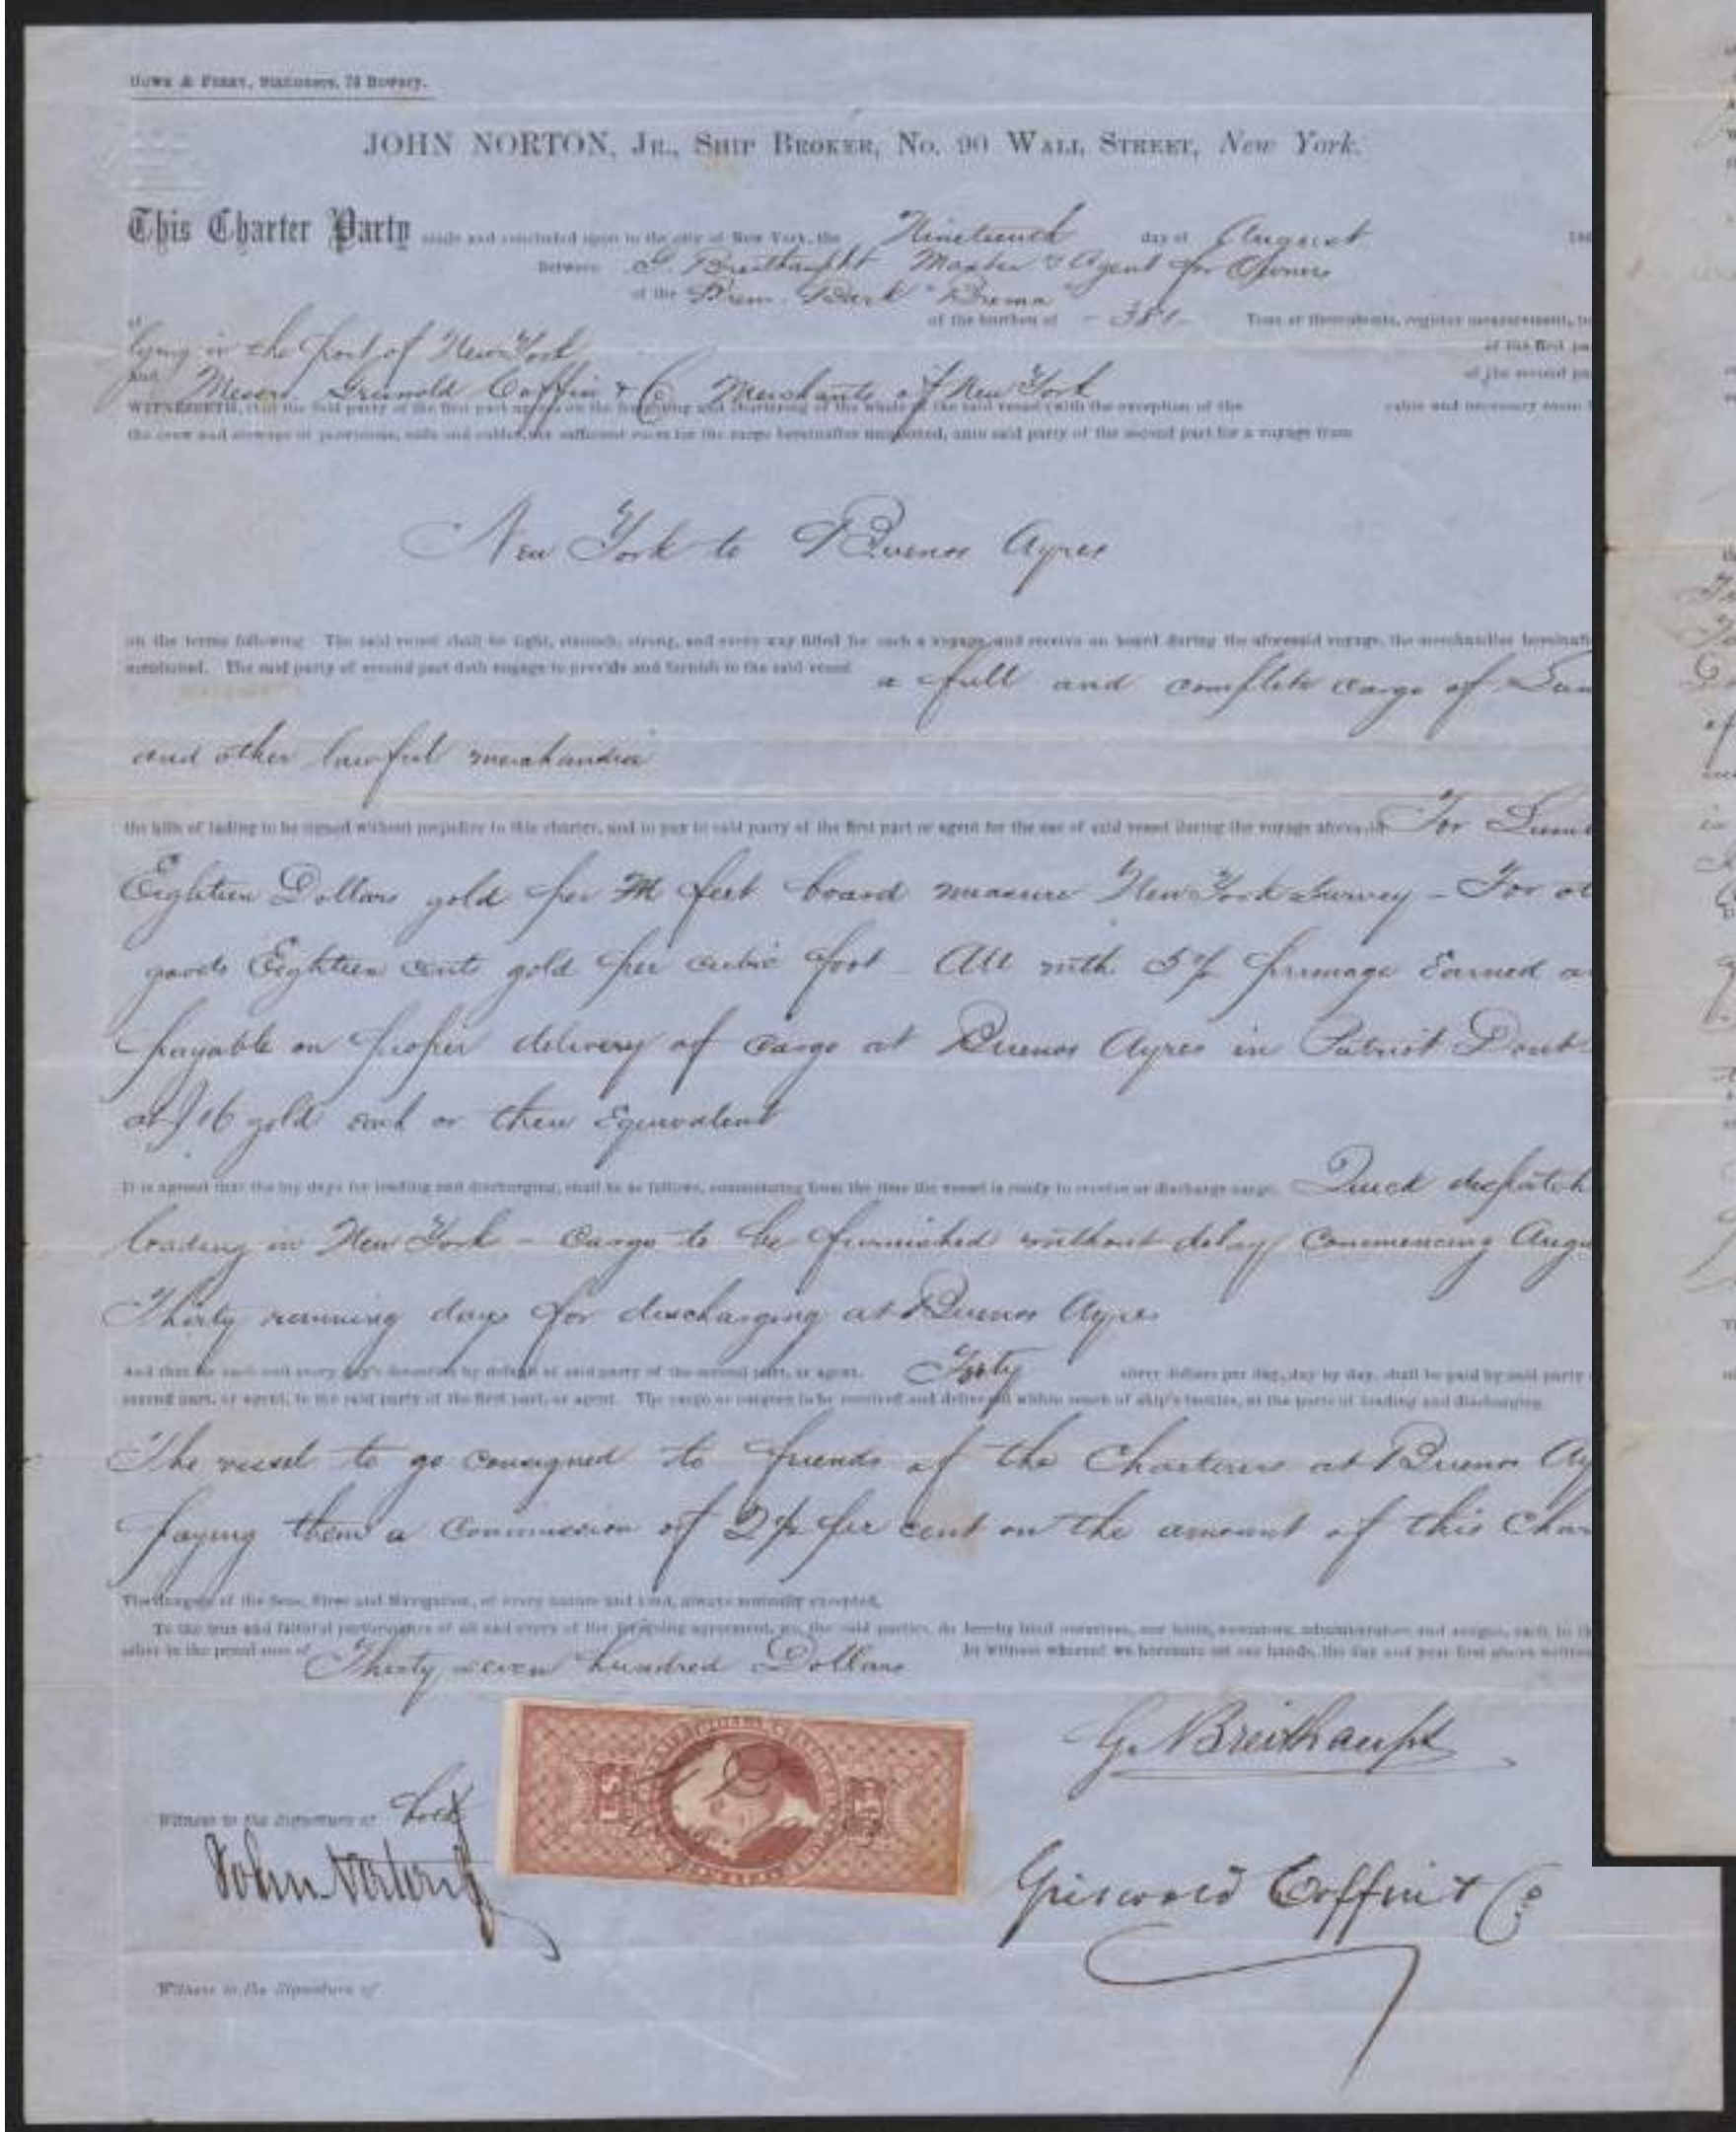 JOHN NORTON, JR., SHIP BROKER, No. 90 WALL STREET, New York.
This Charter Party made and concluded upon in the city of New York, the Nineteenth day of August 186
Between G. Breithaupt Master & Agent for Owners
of the Brem. Bark "Brema"
of of the burthen of - 381 - Tons or thereabouts, register measurement,
lying in the port of New York of the first
And Messrs. Griswold Coffin & Co Merchants of New York of the second
WITNESSETH, that the said party of the first part agrees on the freighting and chartering of the whole of the said vessel (with the exception of the cabin and necessary room
the crew and stowage of provisions, sails and cables, or sufficient room for the cargo hereinafter mentioned, unto said party of the second part for a voyage from
New York to Buenos Ayres
on the terms following The said vessel shall be tight, staunch, strong, and every way fitted for such a voyage, and receive on board during the aforesaid voyage, the merchandise
mentioned. The said party of second part doth engage to provide and furnish to the said vessel a full and complete cargo of
and other lawful merchandise
the bills of lading to be signed without prejudice to this charter, and to pay to said party of the first part or agent for the use of said vessel during the voyage aforesaid For
Eighteen Dollars gold per M feet board measure New York Survey - For
goods Eighteen cents gold per cubic foot All with 5% primage Earned
payable on proper delivery of cargo at Buenos Ayres in Patriot
at $16 gold each or their Equivalent
It is agreed that the lay days for loading and discharging, shall be as follows, commencing from the time the vessel is ready to receive or discharge cargo. Quick dispatch
loading in New York - Cargo to be furnished without delay Commencing
Thirty running days for discharging at Buenos Ayres
And that for each and every day's detention by default of said party of the second part, or agent. Forty silver dollars per day, day by day, shall be paid by said party
second part, or agent, to the said party of the first part, or agent. The cargo or cargoes to be received and delivered within reach of ship's tackles, at the ports of loading and discharging.
The vessel to go consigned to friends of the Charterers at Buenos
paying them a Commission of 2½ per cent on the amount of this
The dangers of the Seas, Fires and Navigation, of every nature and kind, always mutually excepted.
To the true and faithful performance of all and every of the foregoing agreement, we, the said parties, do hereby bind ourselves, our heirs, executors, administrators and assigns, each to the
other in the penal sum of Thirty seven hundred Dollars In witness whereof we hereunto set our hands, the day and year first above written
G. Breithaupt
Witness to the Signature of both
John Norton Jr
Griswold Coffin & Co
Witness to the Signature of